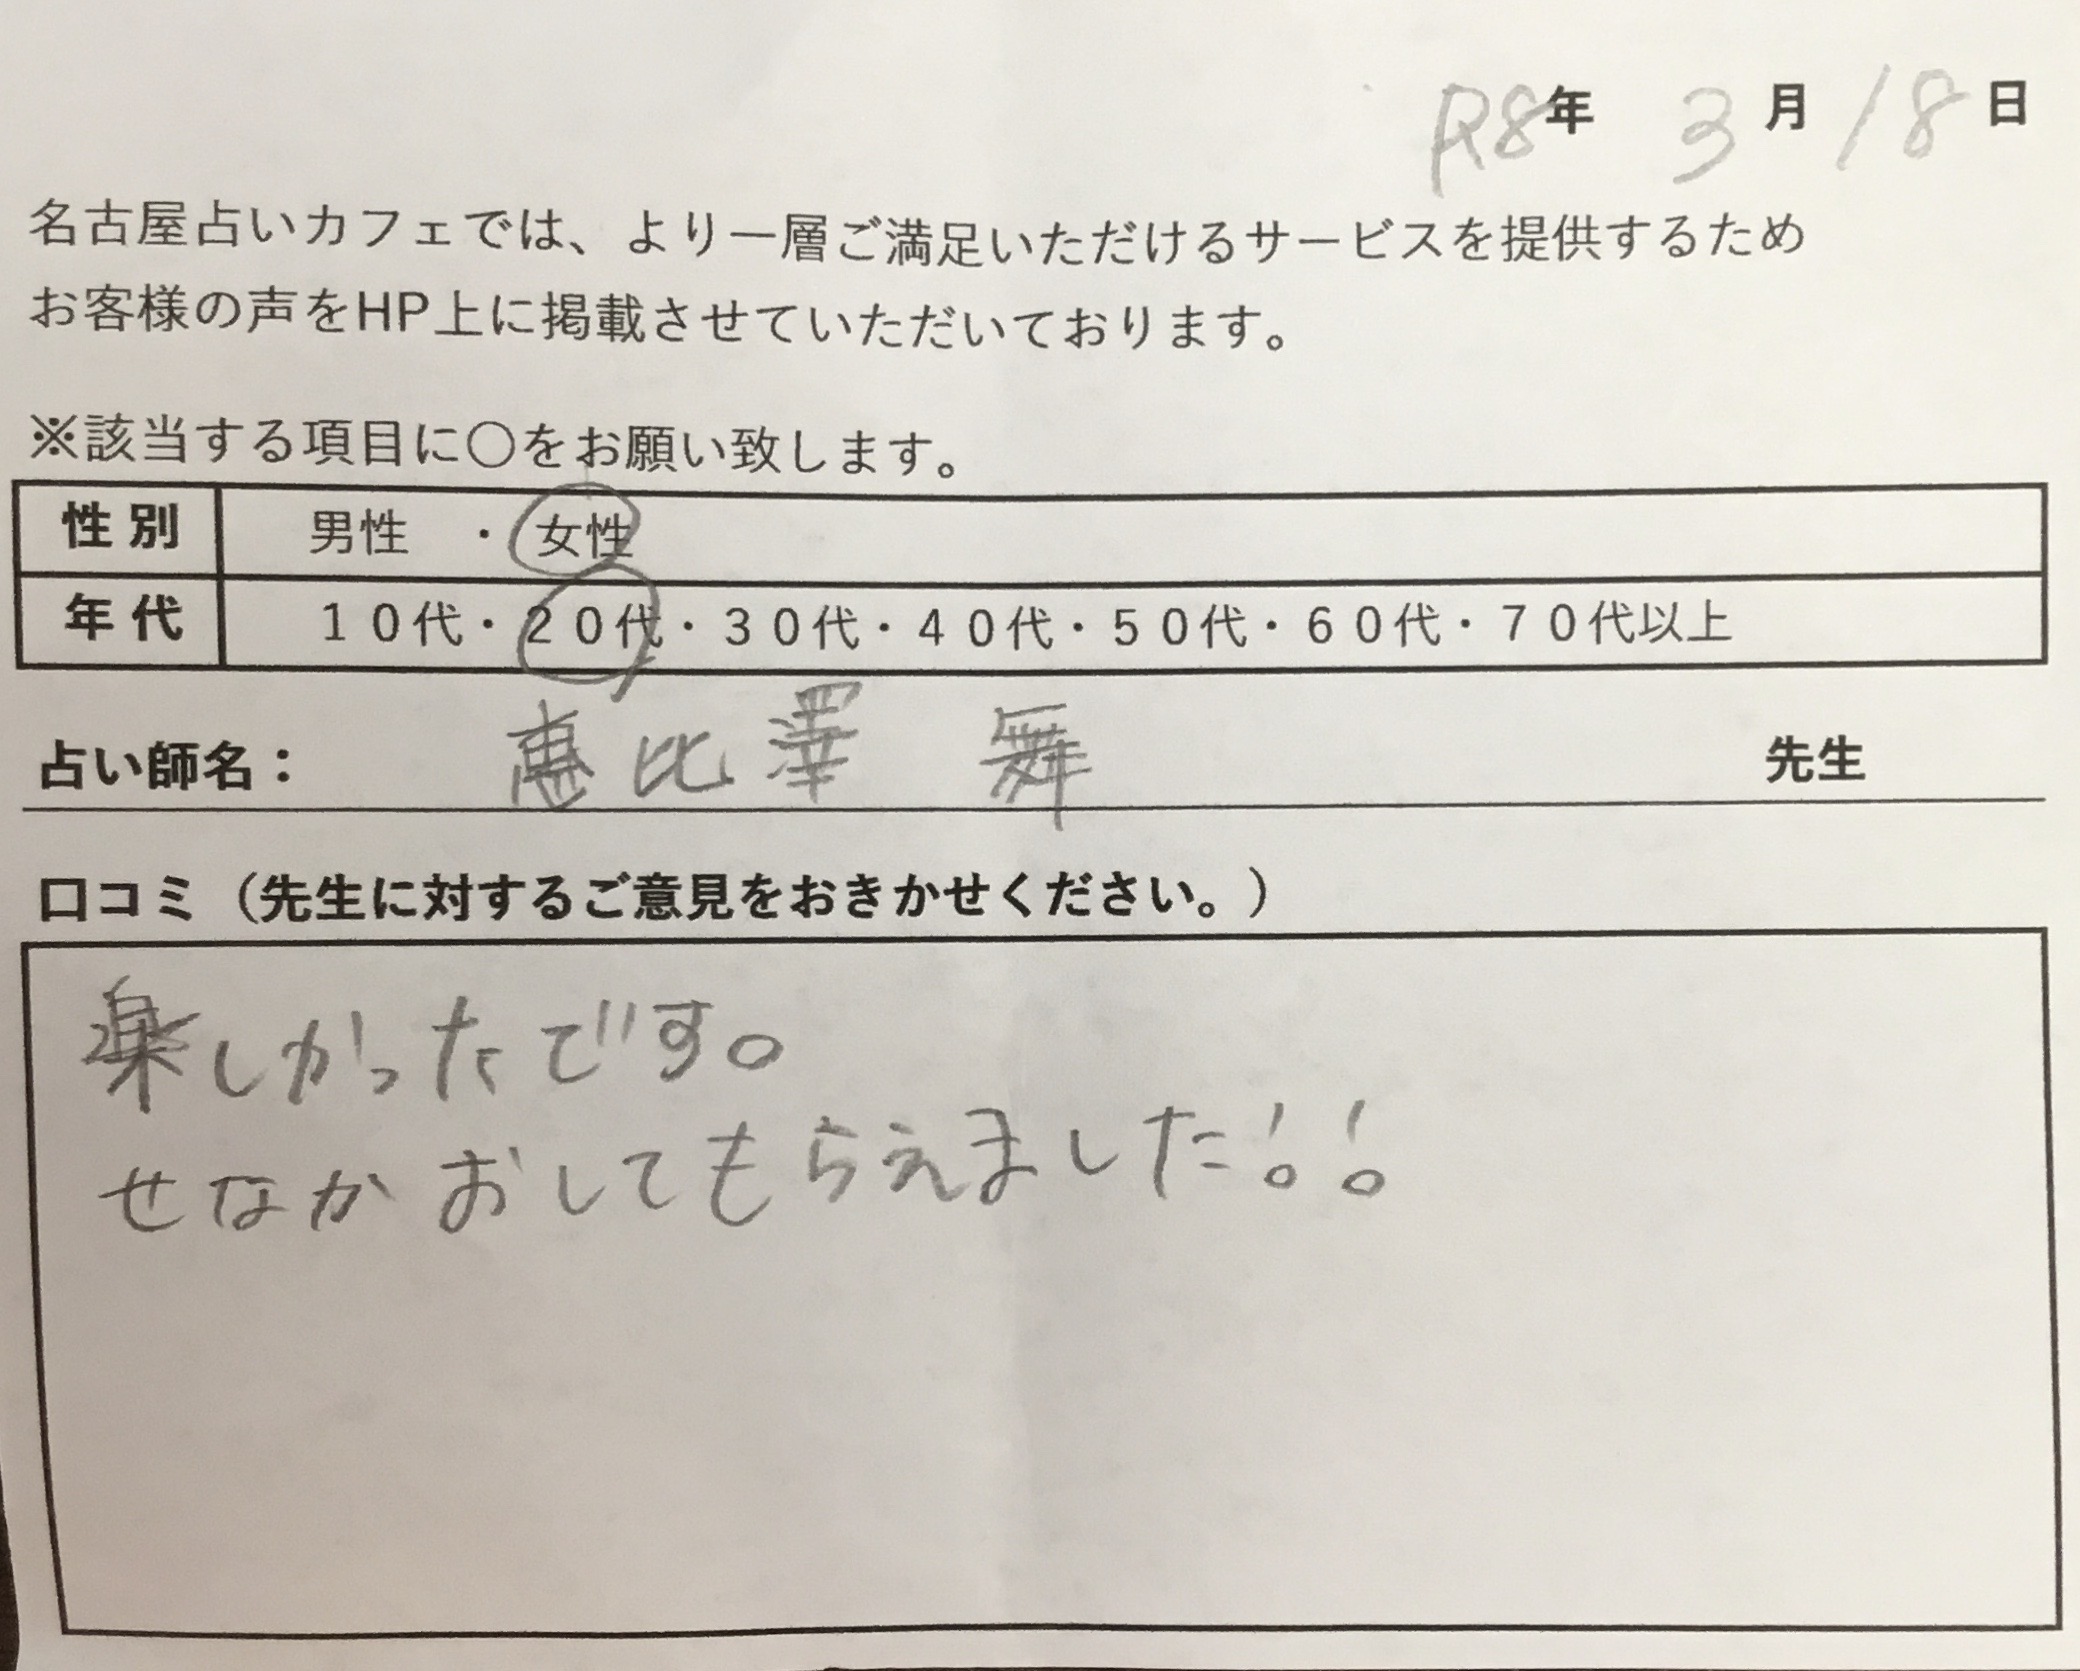 R8年 3月18日
名古屋占いカフェでは、より一層ご満足いただけるサービスを提供するため
お客様の声をHP上に掲載させていただいております。
※該当する項目に〇をお願い致します。
性別 男性 ・ 女性
年代 １０代・２０代・３０代・４０代・５０代・６０代・７０代以上
占い師名： 恵比澤 舞 先生
口コミ（先生に対するご意見をおきかせください。）
楽しかったです。
せなかおしてもらえました!!